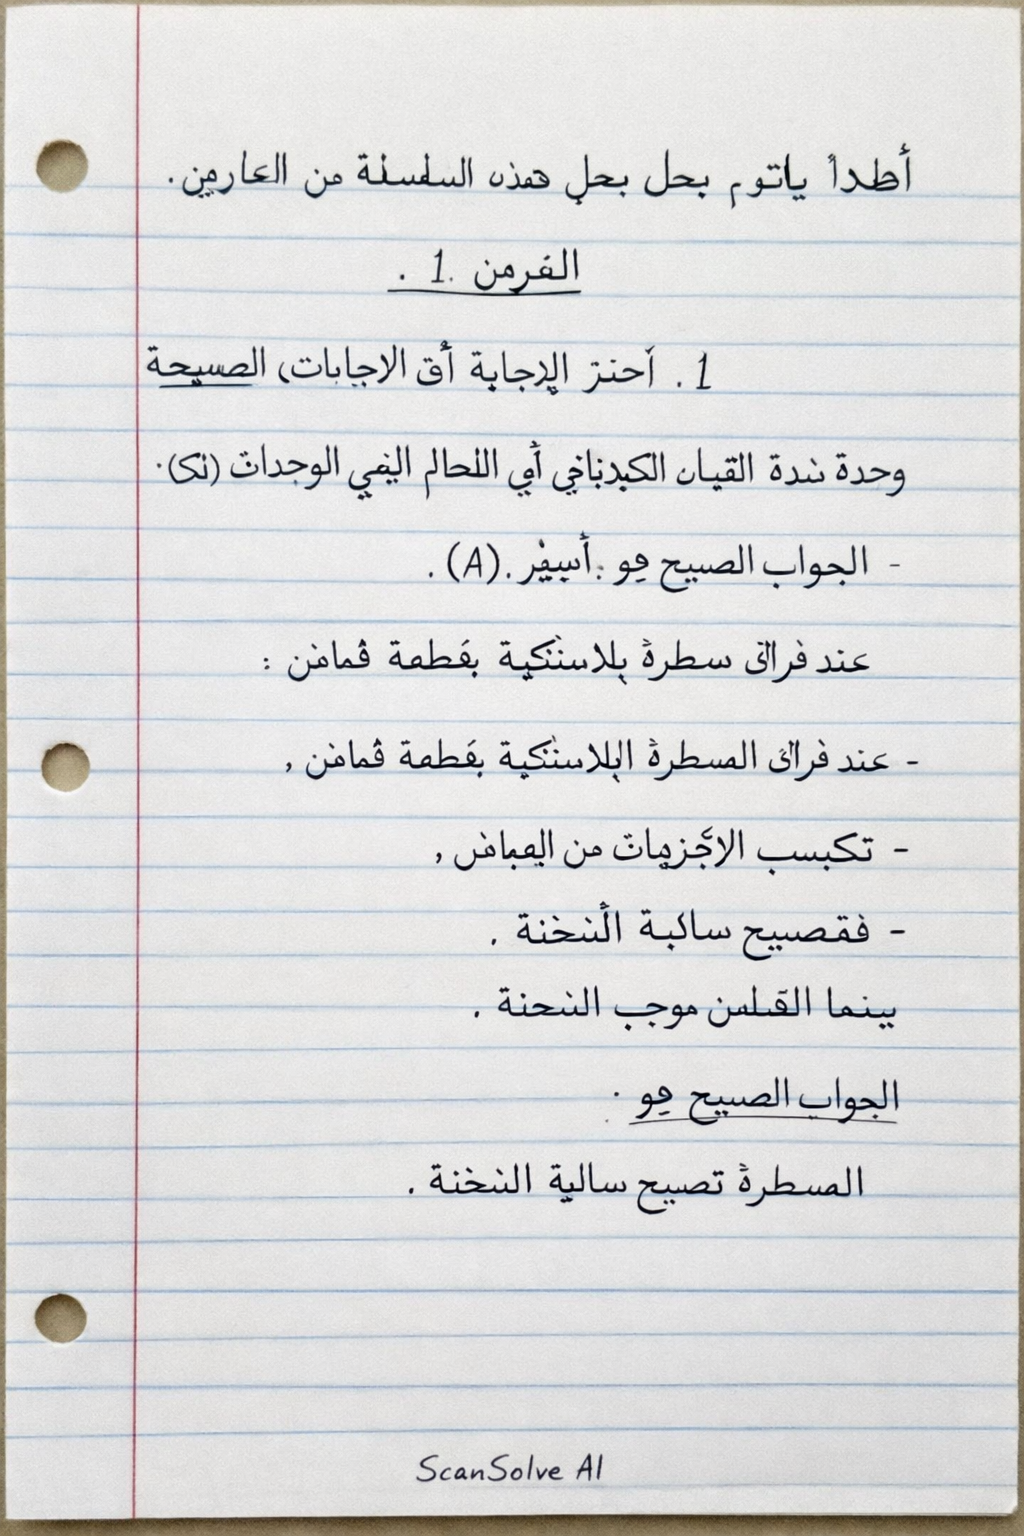 أطدأ ياتوم بحل بحل همذه السلسلة من العاريين.
الفرمن 1.
1. أحنز الإجابة أق الاجابات) الصسيحة
وحدة شدة القيان الكيدباني أي اللحالم اليفي الوجدات (نك).
- الجواب الصبيح هو: أسيفر. (A).
عند فراق سطرة بلاستنكية بقطمة قمامن :
- عند فراق المسطرة البلاستنكية بقطمة قمامن ,
- تكبسب الإجزيمات من اليمبامن ,
- فقصبيح سالبة النخنة .
بينما القلمن موجب النحنة .
الجواب الصبيح هو .
المسطرة تصيح سالية النخنة .
ScanSolve AI